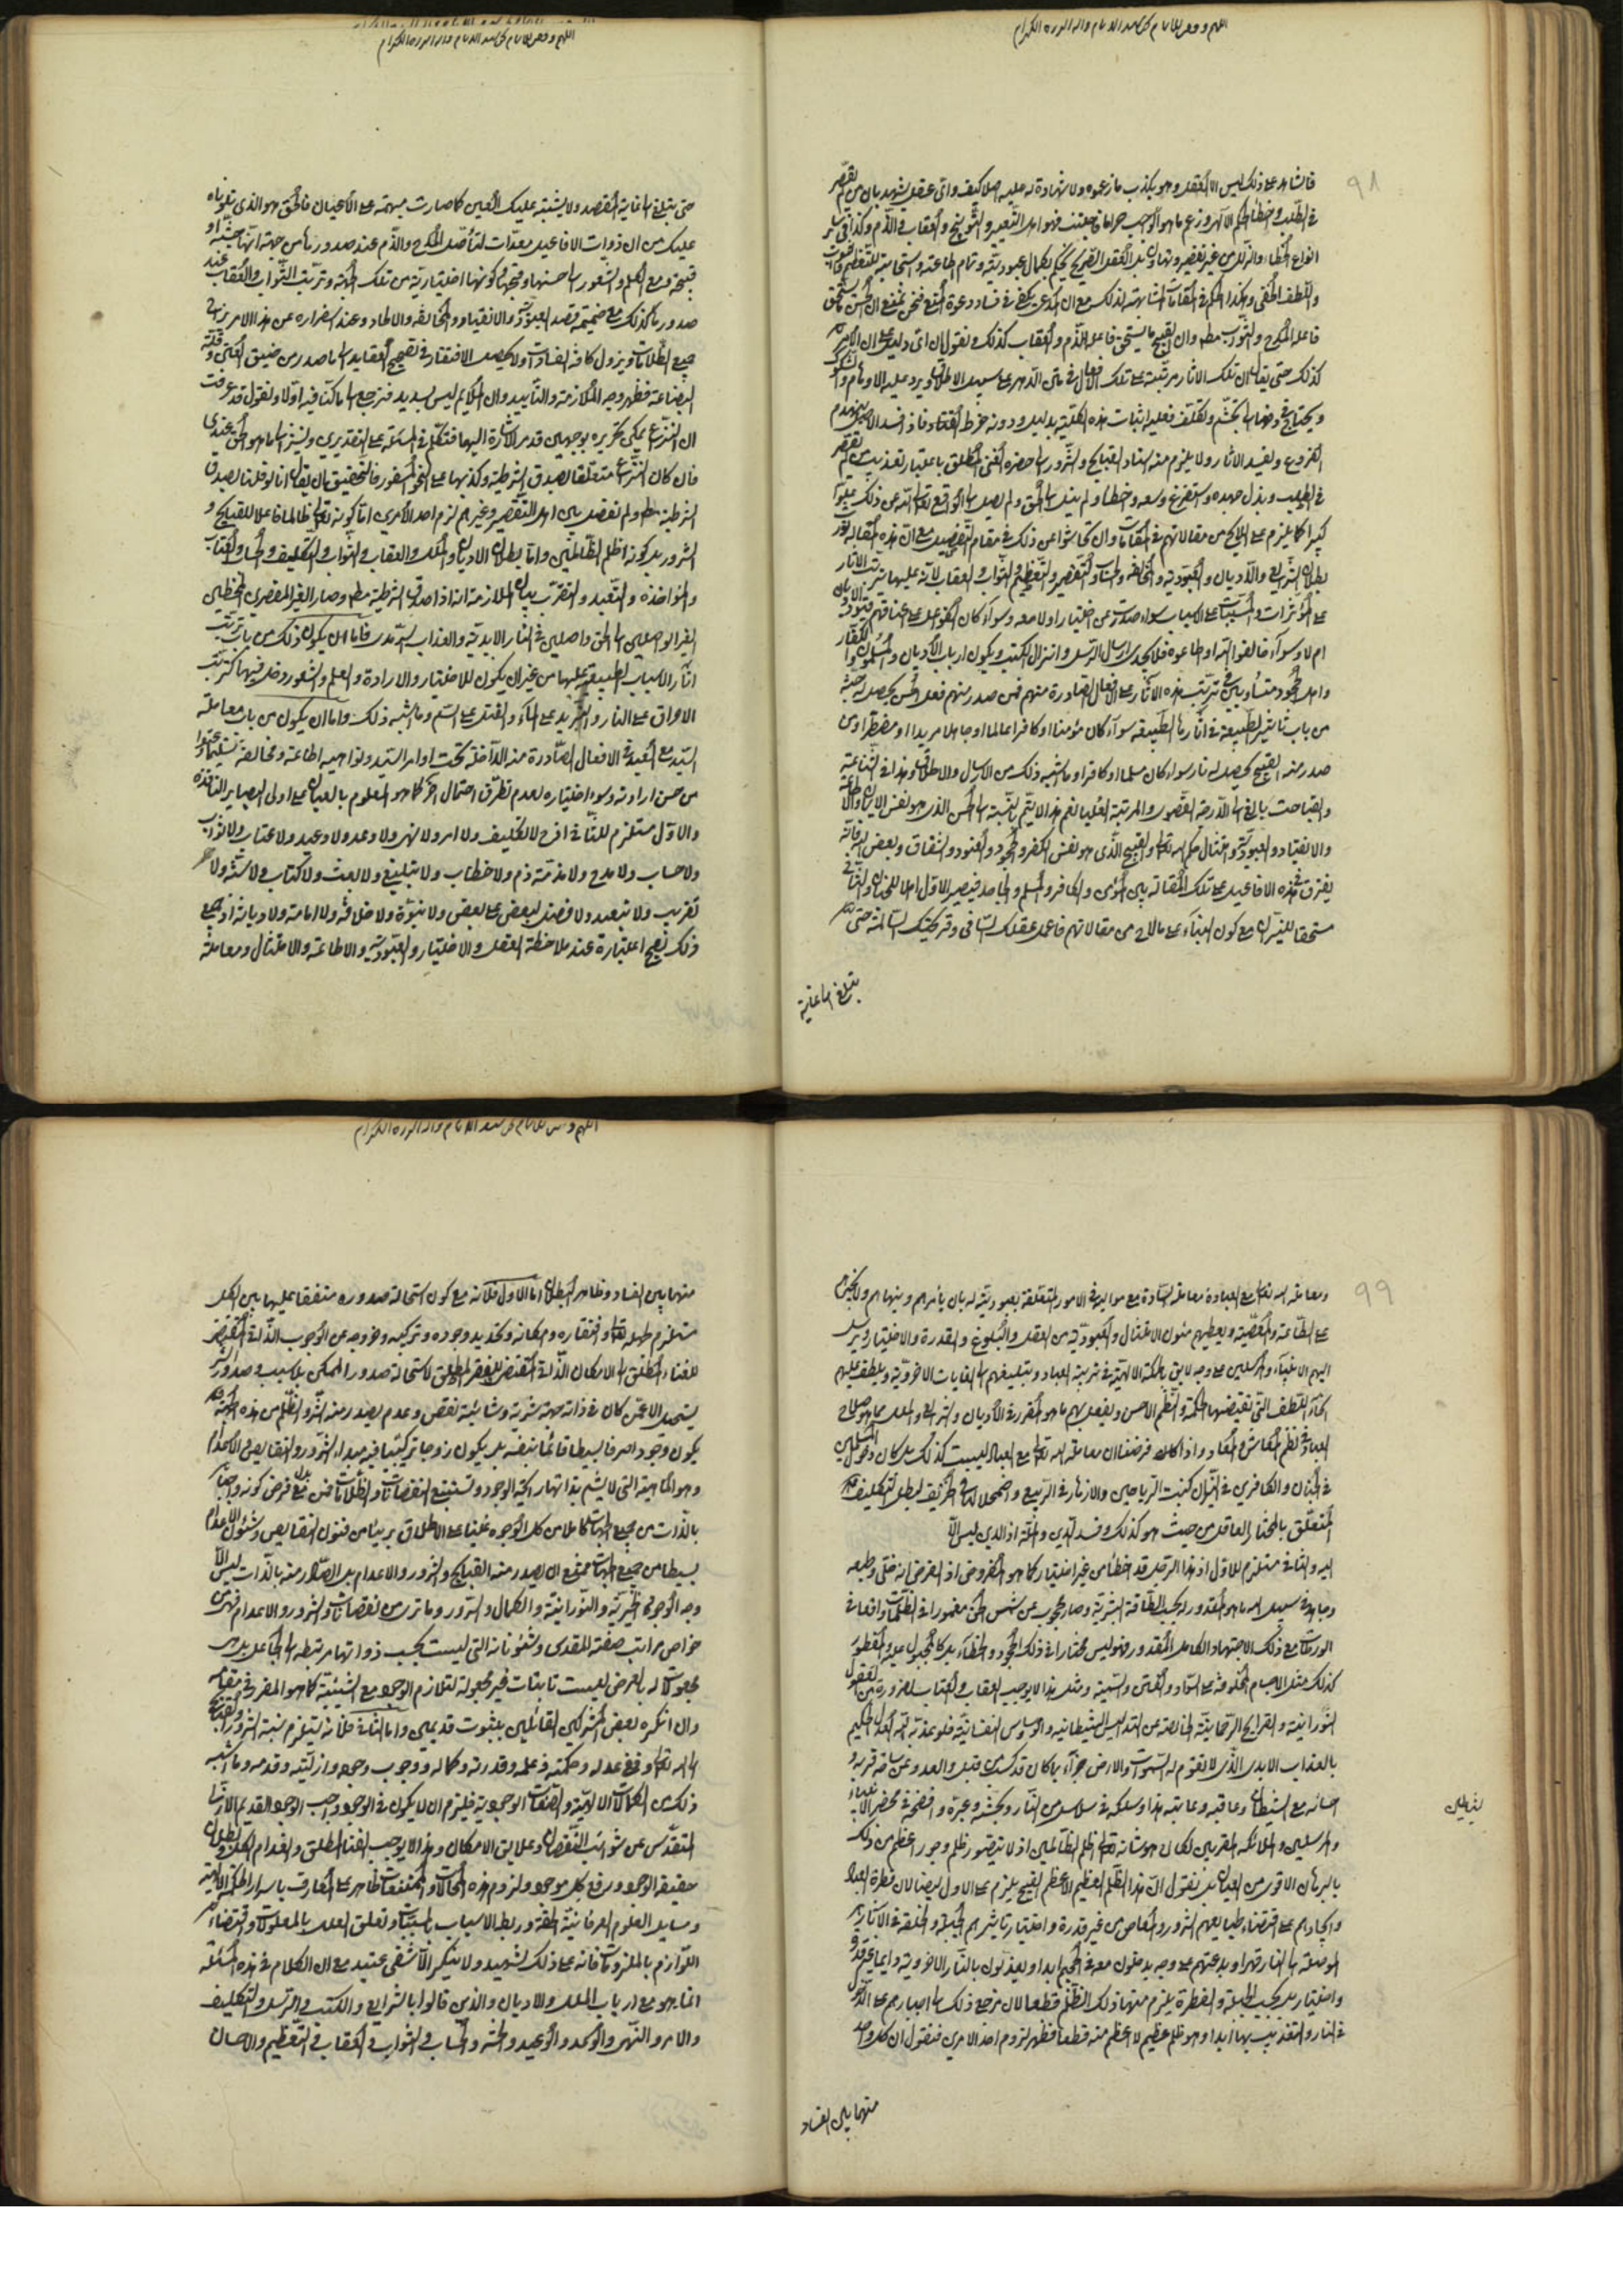 اللهم وفقنا
٩٨
فالشاهد على ذلك ليس الا العقل وهو يكذب ما زعموه ولا شهادة له عليه اصلا كيف واي عقل يشهد بان من لم يقصر
في الطلب وخطأ الحكم الالهى وزعم ما هو الواجب حراما فاجتنب فهو اهل التعيير والتوبيخ والعقاب والذم وكذا في ساير
انواع الخطاء والزلل من غير تقصير وتهاون بل العقل الصريح يحكم بكمال عبوديته وتمام اطاعته واستحقاقه للتعظيم
واللطف الخفى وهكذا الحكم في المقامات المشابهة لذلك مع ان المدعى يكفى في فساد دعوة المنع فنحن نمنع ان الحسن يستحق
فاعله المدح والثواب مطلقا وان القبيح ما يستحق فاعله الذم والعقاب كذلك ونقول ان اى دليل على ان الامر
كذلك حتى يقال ان تلك الاثار مرتبة على تلك الافعال في متن الدهر على سبيل الاطلاق ويرد عليه الاوهام والشكوك
ويحتاج في دفعها الى تجشم وتكلف فعليه اثبات هذه الكلية بدليل ودونه خرط القتاد فاذا فسد الاصل ينهدم
الفروع وتفسد الاثار ولا يلزم منه اسناد القبايح والشرور الى حضرة الغنى المطلق باعتبار تعذيب من لم يقصر
في الطلب وبذل جهده واستفرغ وسعه وخطا ولم ينل الى الحق ولم يصل الى الواقع تعالى الله عن ذلك علوا
كبيرا كما يلزم على اللايح من مقالاتهم في المقامات وان تحاشوا عن ذلك في مقام التفصيل مع ان هذه المقالة تورث
بطلان الشرايع والاديان والعبودية والمخالفة والحساب والتقصير والتعظيم والثواب والعقاب لانه عليها يترتب الاثار
على المؤثرات والمسببات على الاسباب سواء صدرت عن اختيار او لا معه وسواء كان المفوعل على عناقهم قيود الاديان
ام لا وسواء خالفوا الله او اطاعوه فلا يجدى ارسال الرسل وانزال الكتب ويكون ارباب الاديان والمسلمون والكفار
واهل الجحود متساوين في ترتب هذه الاثار على الافعال الصادرة منهم فمن صدر منهم فعل الحسن يحصل له جنة
من باب تاثير الطبيعة في اثارها الطبيعة سواء كان مؤمنا او كافرا عالما او جاهلا مريدا او مضطرا ومن
صدر منه القبيح يحصل له نار سواء كان مسلما او كافرا وما اشبه ذلك من الارسال والاطلاق وهذا في الشناعة
والقباحة بالغ الى الدرجة القصوى والمرتبة العليا نعم هذا لا يتم بالنسبة الى الحسن الذى هو نفس الايمان والاطاعة
والانقياد والعبودية وامتثال حكم الله تعالى والقبيح الذى هو نفس الكفر والجحود والعنود والشقاق وبعض
يفترق في هذه الافاعيل على تلك المقالة بين المؤمن والكافر والمسلم والجاحد فيصير الاول اهلا للجنان والثاني
مستحقا للنيران مع كون البناء على ما لاح من مقالاتهم فاعمل عقلك الصافى وقريحتك السالمة حتى
تبلغ الى غاية
اللهم وفقنا
حتى تبلغ الى غاية المقصد ولا يشتبه عليك التعين كما صارت مبهمة على الاعيان فالحق هو الذى تلوناه
عليك من ان ذوات الافاعيل معدات لتأصل المدح والذم عند صدورها من جهة انها حسنة او
قبيحة مع العلم والشعور الى حسنها وقبحها وكونها اختيارية من تلك الجهة وترتب الثواب والعقاب عند
صدورها كذلك مع ضميمة قصد العبودية والانقياد والمخالفة والالحاد وعند اسفراره عن هذا الامر يرتفع
جميع الظلمات ويزول كافة الفسادات ولا يحصل الافتقار في تصحيح العقايد الى ما صدر من ضيق الخناق وقلة
البضاعة فظهر وجه الملازمة والتأييد وان الحكايم ليس بسديد فنرجع الى ما كنا فيه اولا ونقول قد عرفت
ان النزاع يمكن تحريره بوجهين قد مر الاشارة اليها فنتكلم في المسئلة على التقديرين ونشير الى ما هو الحق عندى
فان كان النزاع متعلقا بصدق الشرطية وكذبها على النحو المسفور فالتحقيق بان يقال انا لو قلنا بصدق
الشرطية مطلقا ولم نفصل بين اهل التقصير وغيرهم لزم احد الامرين اما كونه تعالى ظالما فاعلا للقبايح و
الشرور بل كونه اظلم الظالمين واما بطلان الاديان والملل والعقاب والثواب والتكليف والحساب والكتاب
والمؤاخذة والتعبد والتقرب بيان الملازمة انه اذا صدقت الشرطية مطلقا وصار الغير المقصرى المخطئين
الغير الواصلين الى الحق واصلين في النار الابدية والعذاب السرمد فاما ان يكون ذلك من باب ترتب
اثار الاسباب الطبيعية عليها من غير ان يكون للاختيار والارادة والعلم والشعور دخل فيها كترتب
الاحراق على النار والتبريد على الماء والقتل على السم وما اشبه ذلك واما ان يكون من باب معاملة
السيد مع العبيد في الافعال الصادرة منه الداخلة تحت اوامر السيد ونواهيه اطاعة ومخالفة
من حسن ارادته وسوء اختياره لعدم تطرق احتمال اخر كما هو المعلوم بالعيان على اولى البصاير النافذة
والاول مستلزم للتنافى اذح لا تكليف ولا امر ولا نهى ولا وعد ولا وعيد ولا عتاب ولا ثواب
ولا حساب ولا مدح ولا مذمة ذم ولا خطاب ولا تبليغ ولا بعث ولا كتاب ولا سنة ولا
تقريب ولا تبعيد ولا فضل لبعض على بعض ولا نبوة ولا خلافة ولا امامة ولا ديانة اذ جميع
ذلك يصح اعتباره عند ملاحظة العقل والاختيار والعبودية والاطاعة والامتثال ومعاملة
٩٩
ومعاملة الله تعالى مع العباد معاملة السادة مع مواليهم في الامور المتعلقة بعبوديته له بان يأمرهم وينهاهم
على الطاعة والمعصية ويعطيهم مئون الامتثال والعبودية من العقل والبلوغ والقدرة والاختيار ويرسل
اليهم الانبياء والمرسلين على وجه لايق بالحكمة الالهية في تربية العباد وتبليغهم الى الغايات الاخروية ويلطف عليهم
انحاء اللطف التى تقتضيها الحكمة والنظم الاحسن ويفعل بهم ما هو المقرر في الاديان والشرايع والملل مما هو صلاح
العباد في نظم المعاش والمعاد واذا كان فرضنا ان معاملة الله تعالى مع العباد ليست كذلك بل كان دخول المسلمين
في الجنان والكافرين في النيران كنبت الرياحين والازهار في الربيع واضمحلالها في الخريف لبطل التكليف
المتعلق بالمختار العاقل من حيث هو كذلك وفسد الدين والملة اذ الدين ليس الا
اليه والثانى مستلزم للاول اذ هذا الرجل قد اخطأ من غير اختيار كما هو المفروض اذ الفرض انه
وجاهد في سبيل الله ما هو المقدور له بحسب الطاقة البشرية وصار محجوب عن شمس الحق مغمورا في الظلمات واقعا في
الورطات مع ذلك الاجتهاد الكامل المقدور فهو ليس مختارا في ذلك الجحود والخطاء بل كالمجبول عليه والمفطور
كذلك مثل الاجسام المخلوقة على السواد ومثل هذا لا يوجب العقاب والعتاب لضرورة من العقول
النورانية والقرايح الرحمانية الخالصة عن التدليس الشيطانية والوساوس النفسانية فلو عذبه الله العدل الحكيم
بالعذاب الابدى الذى لا تقوم له السموات والارض جزاء بما كان قد كسب من قبل والعدو عن ساحة قربه و
احسانه مع الشيطان وعاقبه وعاتبه بهذا وسلكه في سلاسل من النار وافضحه في محضر الانبياء
والمرسلين والملائكة المقربين لكان هو شانه تعالى اظلم الظالمين اذ لا يتصور ظلم وجور اعظم من ذلك
بالبرهان الاقوى من العيان بل نقول ان هذا الظلم العظيم الاعظم القبيح يلزم على الاول ايضا لان فطرة العباد
وايجادهم على اقتضاء طبايعهم الشرور والمعاصى من غير قدرة واختيار
الموصلة الى النار قهرا وبدعتهم على وجه يدخلون معه في الجحيم ابدا ويعذبون بالنار الاخروية دايما
واختيار بل بحسب الجبلة والفطرة يلزم منها ذلك الظلم قطعا لان مرجع ذلك الى اجبارهم على الدخول
في النار والتعذيب بها ابدا وهو ظلم عظيم لا اعظم منه قطعا فظهر لزوم احد الامرين فنقول ان كل واحد
منهما بين الفساد
اللهم
منهما بين الفساد وظاهر البطلان اما الاول فلانه مع كون استحالة صدوره متفقا عليها بين الكل
مستلزم لجهله تعالى وافتقاره وامكانه وتحديد وجوده وتركيبه وخروجه عن الوجوب الذاتى المقتضى
للغناء المطلق الى الامكان الذاتى المقتضى للفقر المطلق لاستحالة صدور الممكن بلا سبب وصدور الشر
يستحيل الا عمن كان في ذاته جهة شرية وشائبة نقص وعدم يصدر منه الشر والظلم من هذه الجهة
يكون وجودا صرفا بسيطا قائما بنفسه بل يكون زوجا تركيبيا فيه مبداء الشرور والنقايص والاعدام
وهو الماهية التى لا يشم بذاتها رائحة الوجود وتستتبع النقصانات والظلمات فمن فرض كونه واجبا
بالذات من جميع الجهات كاملا من كل الوجوه غنيا على الاطلاق بريئا من فنون النقايص وشئون الاعدام
بسيطا من جميع الجهات يمتنع ان يصدر منه القبايح والشرور والاعدام بل الصادر منه بالذات ليس الا
وجه الوجود الخيرية والنورانية والكمال والسرور وما ترى من النقصانات والشرور والاعدام فهى من
خواص مراتب صفته المقدس وشئوناته التى ليست بحسب ذواتها مرتبطة الى الجاعل بل هى
مجعولات له بالعرض ليست ثابتات غير مجعولة لتلازم الوجود مع الشيئية كما هو المقرر في مقامه
وان انكره بعض المشركين القائلين بثبوت قديمين واما الثانى فلانه يستلزم نسبة الشرور والقبايح
الى الله تعالى ورفع عدله وحكمته وعلمه وقدرته وكماله ووجوب وجوده وازليته وقدمه وما اشبه
ذلك من الكمالات الالهية والصفات الوجوبية فيلزم ان لا يكون في الوجود واجب الوجود القديم
المتقدس عن شوائب النقصان وعلايق الامكان وهذا لا يوجب الفناء المطلق وانعدام الكل وبطلان
حقيقة الوجود ورفع كل موجود ولزوم هذه المحالات والممتنعات ظاهر على العارف باسرار الحكمة الالهية
وسايل العلوم العرفانية الحقة وربط الاسباب بالمسببات وتعلق العلل بالمعلولات واقتضاء
اللوازم بالملزومات فانه على ذلك لشهيد ولا ينكر الا شقى عنيد مع ان الكلام في هذه المسئلة
انما هو مع ارباب الملل والاديان والذين قالوا بالشرايع والكتب والرسل والتكليف
والامر والنهى والوعد والوعيد والحشر والحساب والثواب والعقاب والتعظيم والاحسان